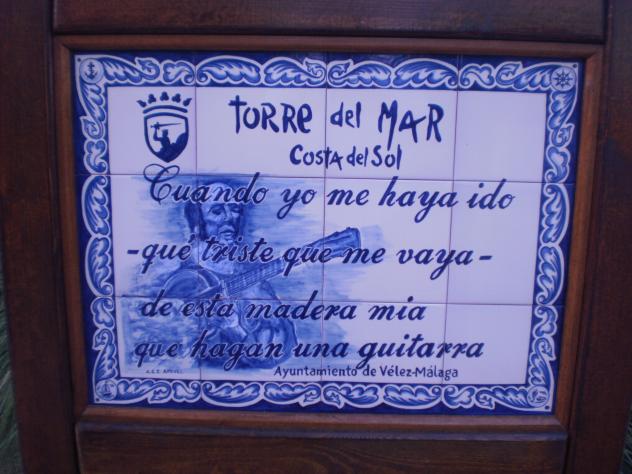 TORRe del MAR
CosTA del Sol
Cuando yo me haya ido
-qué triste que me vaya-
de esta madera mia
que hagan una guitarra
Ayuntamiento de Vélez-Málaga